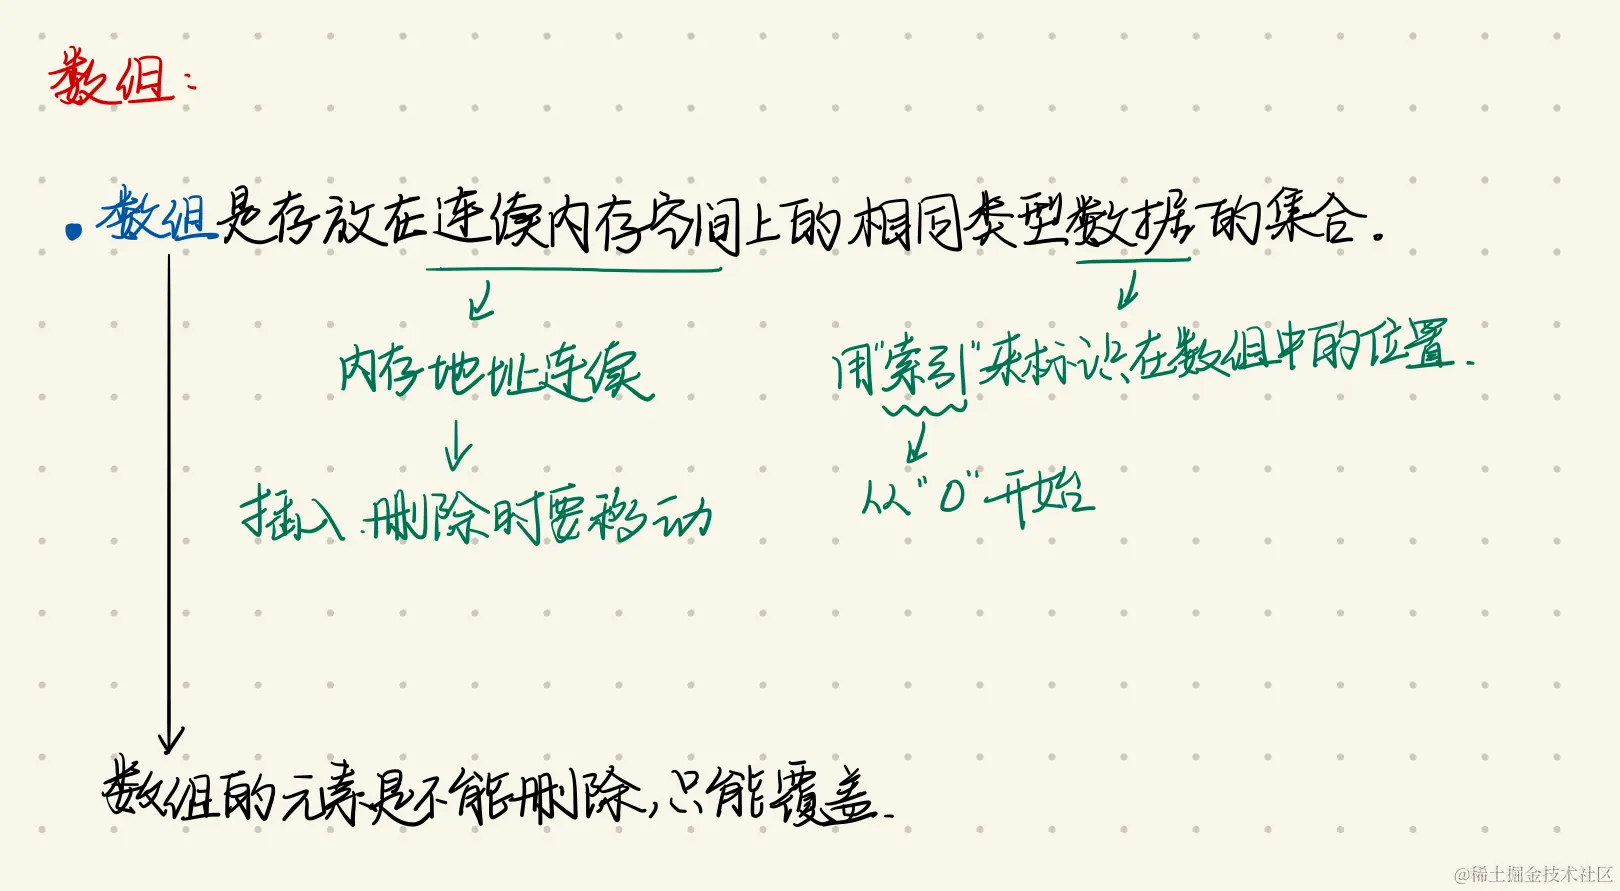 数组：
• 数组是存放在连续内存空间上的相同类型数据的集合.
内存地址连续
用"索引"来标识在数组中的位置.
插入.删除时要移动
从"0"开始
数组的元素是不能删除,只能覆盖.
@稀土掘金技术社区